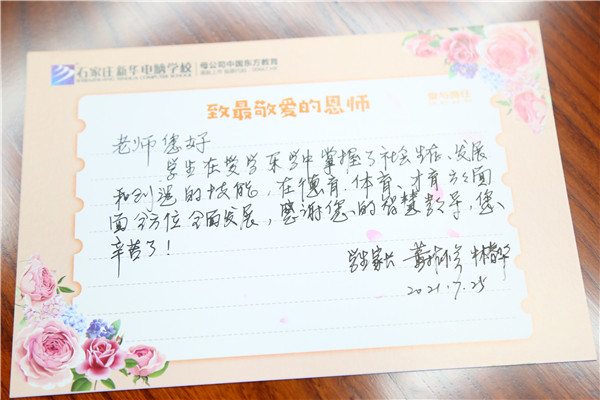 石家庄新华电脑学校 母公司中国东方教育
致最敬爱的恩师
爱与责任
老师您好
学生在爱学乐学中掌握了社会生存、发展
和创造的技能，在德育、体育、才育方方面
面全方位全面发展，感谢您的智慧教导，您
辛苦了！
学生家长
2021.7.25